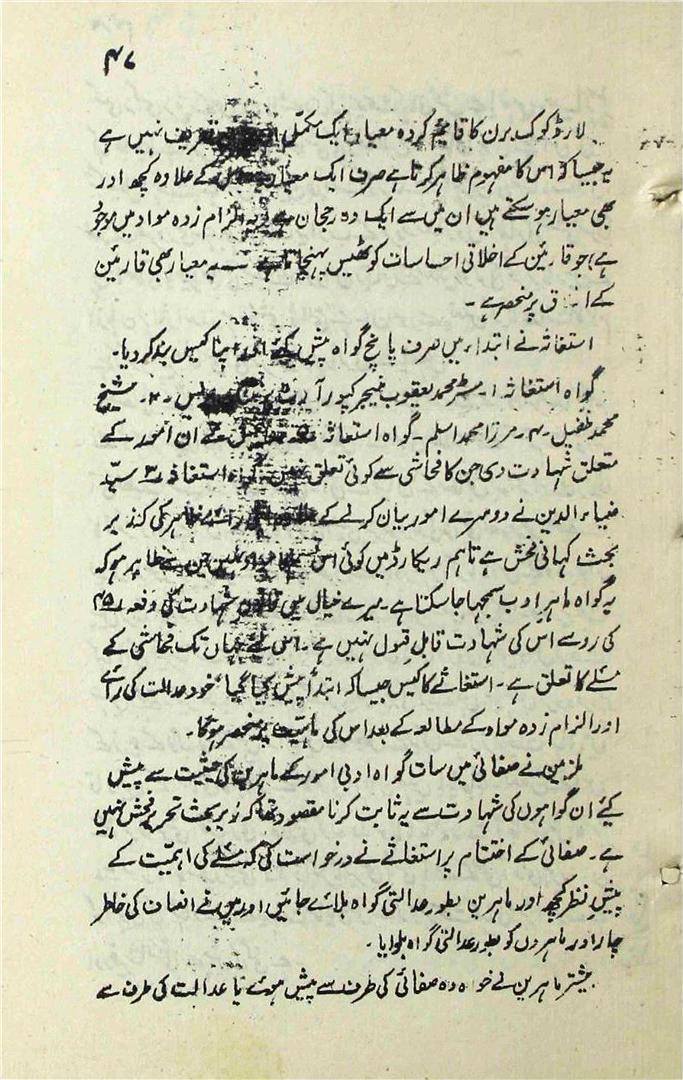 ۴۷
لارڈ کوک برن کا قائم کردہ معیار ایک مکمل تعریف نہیں ہے
یہ جیسا کہ اس کا مفہوم ظاہر کرتا ہے صرف ایک معیار کے علاوہ کچھ اور
بھی معیار ہو سکتے ہیں ان میں سے ایک وہ رجحان الزام زدہ مواد میں موجود
ہے) جو قارئین کے اخلاقی احساسات کو ٹھیس پہنچاتا ہے یہ معیار بھی قارئین
کے پر منحصر ہے ۔
استغاثہ نے ابتداء میں صرف پانچ گواہ پیش کئے اور اپنا کیس بند کر دیا۔
گواہ استغاثہ ۱۔ مسٹر محمد یعقوب منیجر کپور آرٹ ۲۔ شیخ
محمد طفیل ۔ ۴۔ مرزا محمد اسلم ۔ گواہ استغاثہ نے ان امور کے
متعلق شہادت دی جن کا فحاشی سے کوئی تعلق نہیں۔ گواہ استغاثہ ۳ سید
ضیاء الدین نے دوسرے امور بیان کرنے کے رائے ظاہر کی کہ زیر
بحث کہانی فحش ہے تاہم ریکارڈ میں کوئی اس جن سے ظاہر ہو کہ
یہ گواہ ماہر ادب سمجھا جا سکتا ہے ۔ میرے خیال میں قانون شہادت کی دفعہ ۴۵
کی رو سے اس کی شہادت قابل قبول نہیں ہے ۔ اس لئے جہاں تک فحاشی کے
مسئلے کا تعلق ہے ۔ استغاثے کا کیس جیسا کہ ابتداً پیش کیا گیا، خود عدالت کی رائے
اور الزام زدہ مواد کے مطالعہ کے بعد اس کی ماہیت پر منحصر ہوگا۔
ملزمین نے صفائی میں سات گواہ ادبی امور کے ماہرین کی حیثیت سے پیش
کئے ان گواہوں کی شہادت سے یہ ثابت کرنا مقصود تھا کہ زیر بحث تحریر فحش نہیں
ہے ۔ صفائی کے اختتام پر استغاثے نے درخواست کی کہ مسئلے کی اہمیت کے
پیش نظر کچھ اور ماہرین بطور عدالتی گواہ بلائے جائیں اور میں نے انصاف کی خاطر
چار اور ماہروں کو بطور عدالتی گواہ بلوایا ۔
بیشتر ماہرین نے خواہ وہ صفائی کی طرف سے پیش ہوئے یا عدالت کی طرف سے